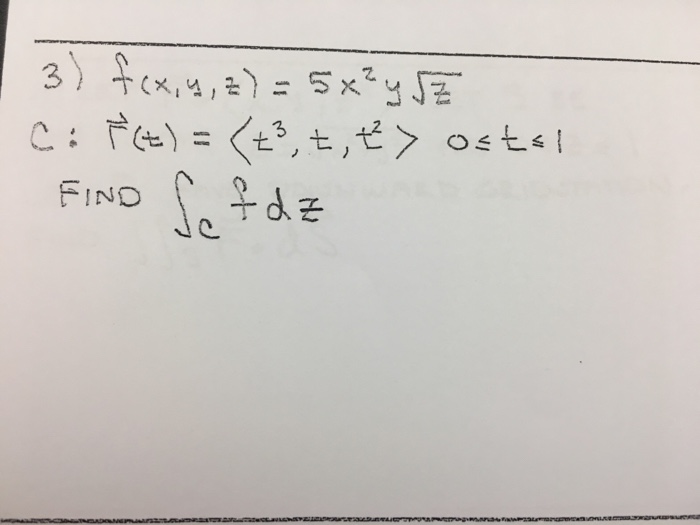 3) f(x,y,z) = 5x²y√z
C: r⃗(t) = ⟨t³, t, t²⟩ 0≤t≤1
FIND ∫_C f dz